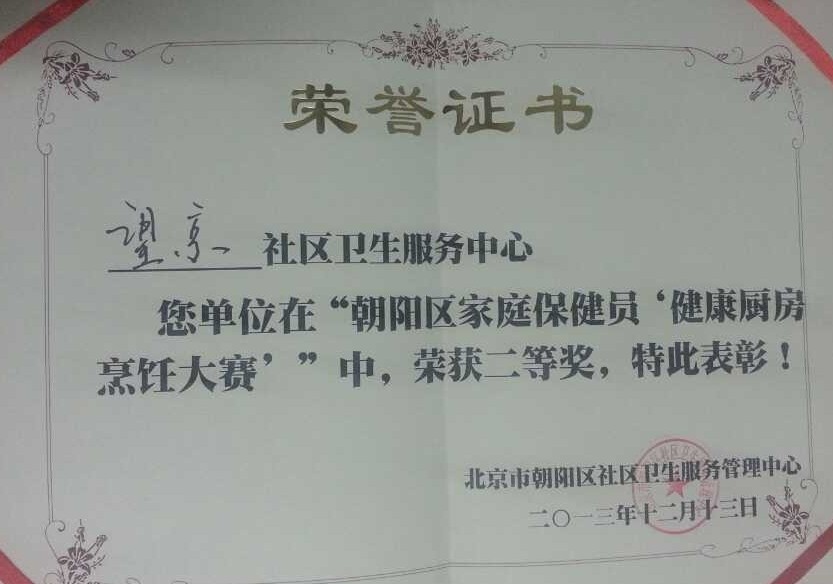 荣誉证书
望京社区卫生服务中心
您单位在“朝阳区家庭保健员‘健康厨房
烹饪大赛’”中,荣获二等奖,特此表彰!
北京市朝阳区社区卫生服务管理中心
二〇一三年十二月十三日